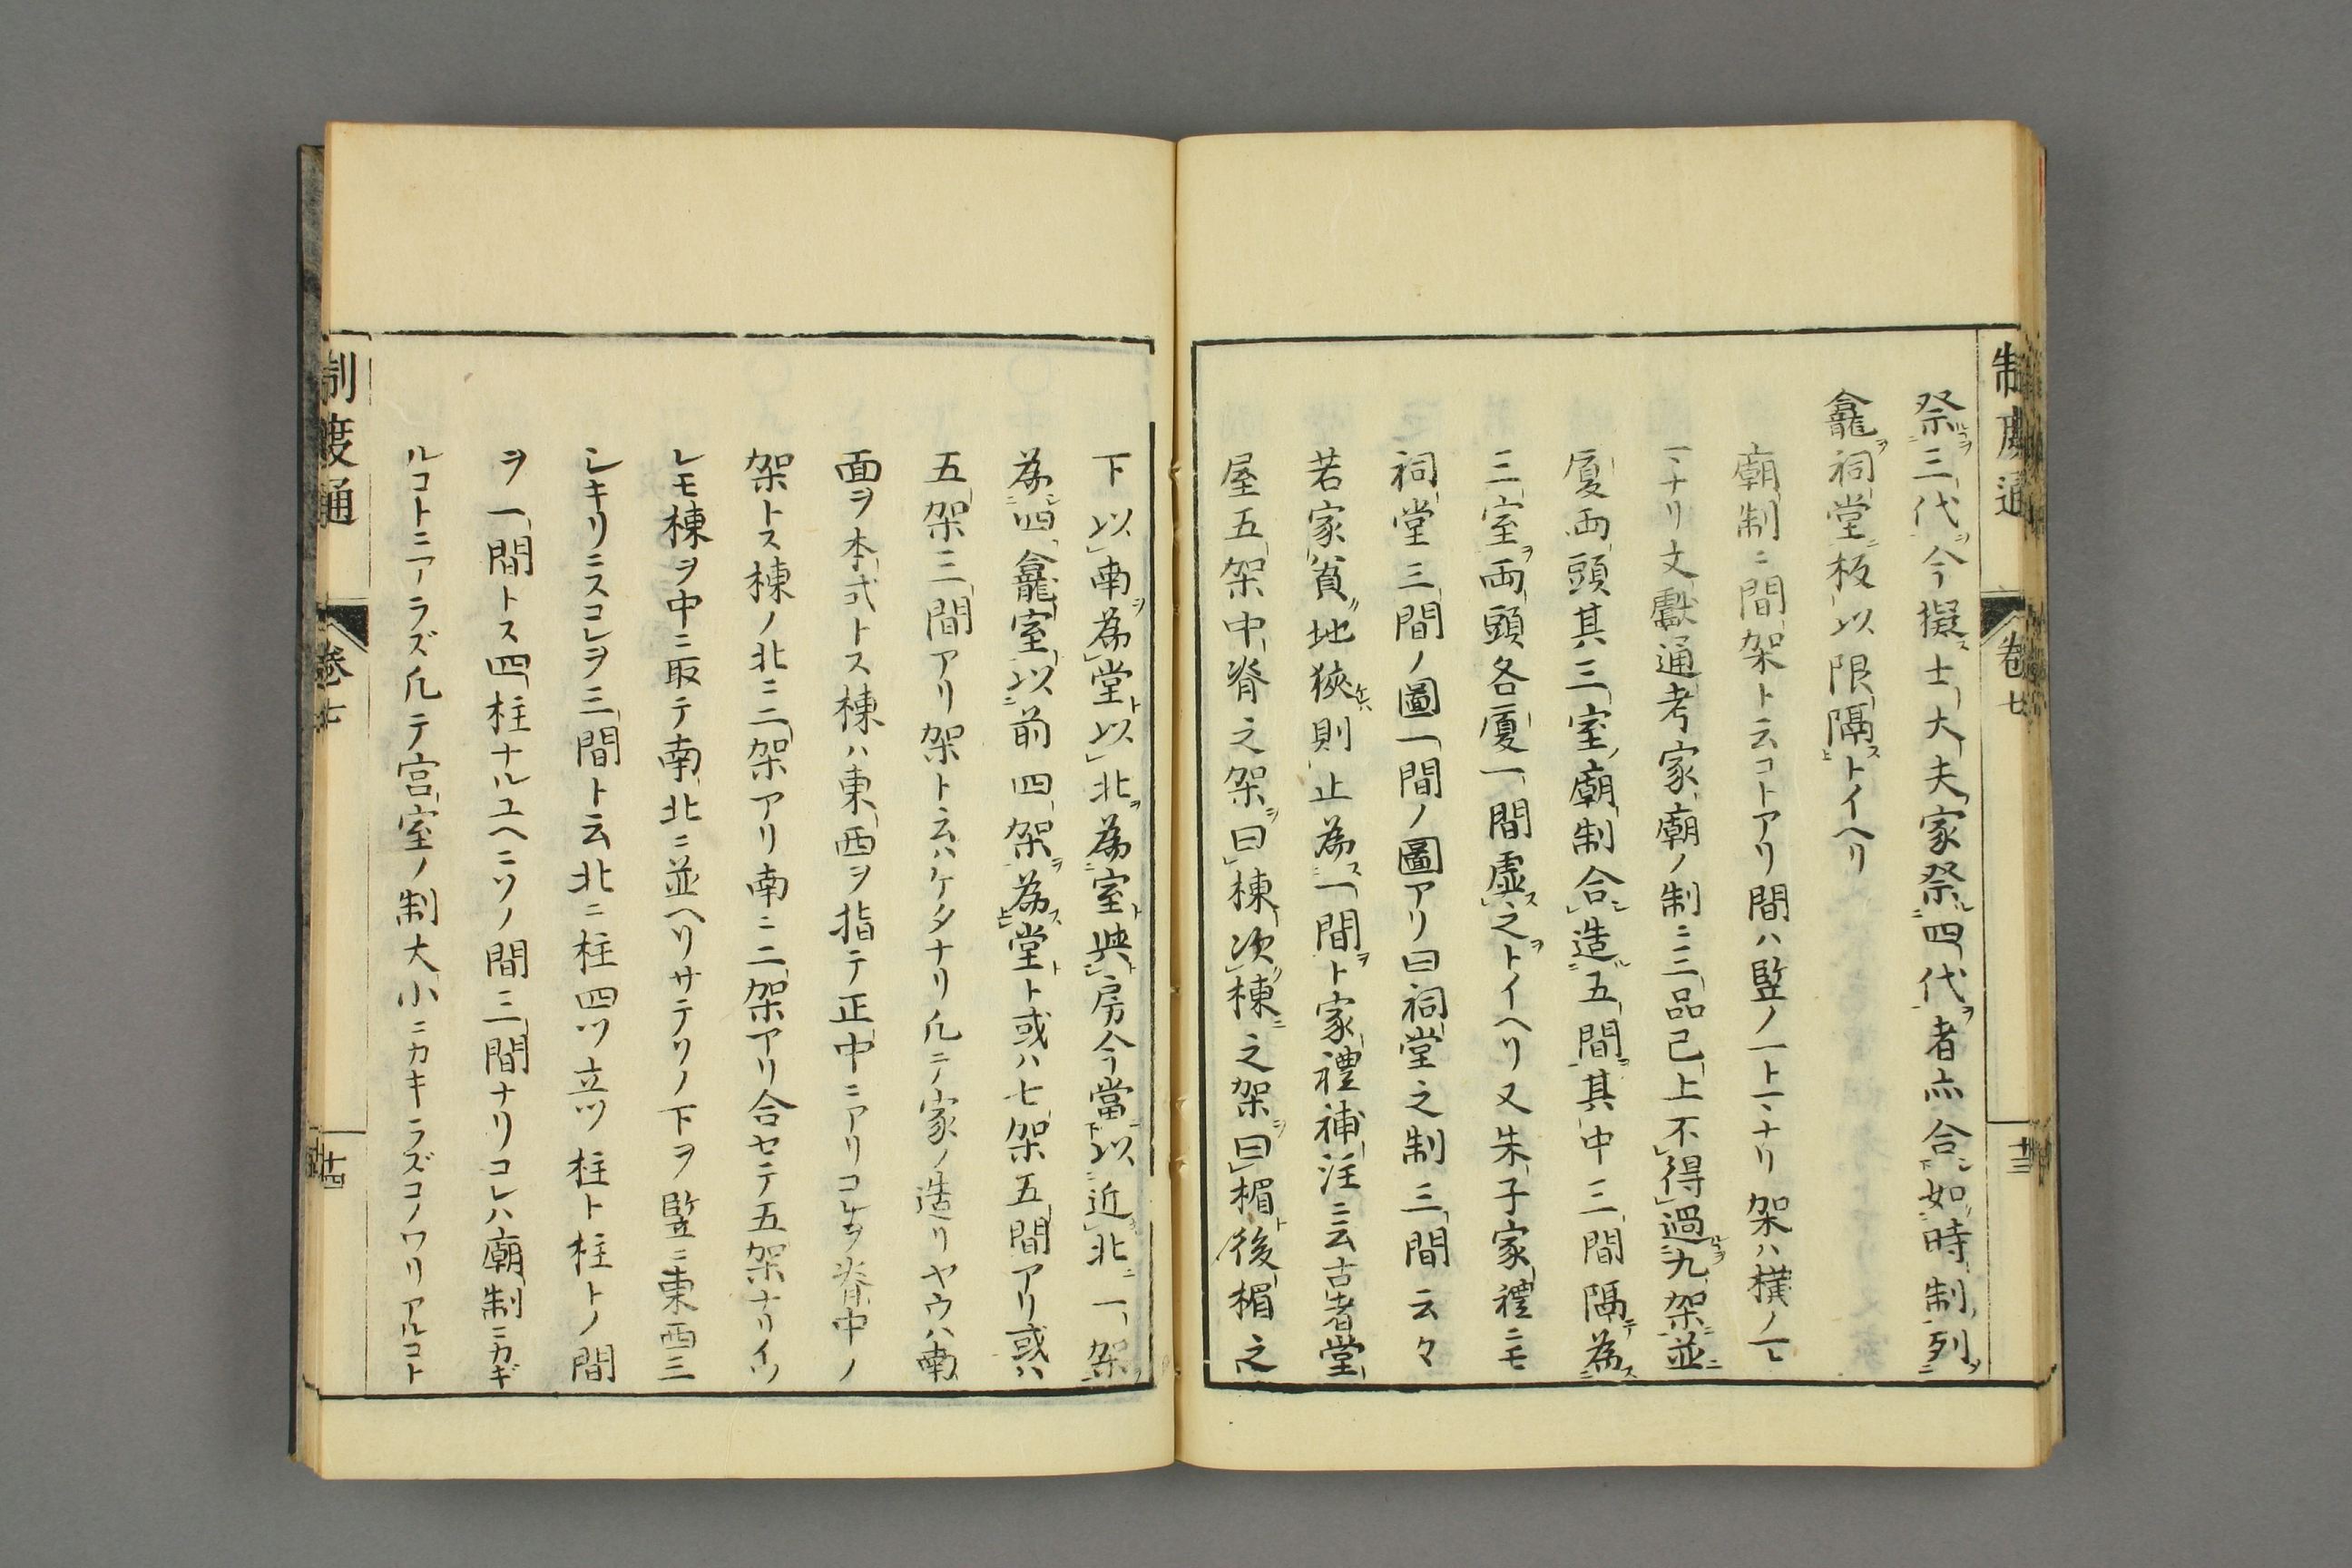 制度通
卷七
十三
祭三代今擬士大夫家祭四代者亦合如時制列
龕祠堂板以限隔トイヘリ
廟制ニ間架ト云コトアリ間ハ竪ノ一トヽナリ架ハ横ノ一ト
ヽナリ文獻通考家廟ノ制ニ三品已上不得過九架並
厦両頭其三室廟制合造五間其中三間隔為
三室両頭各厦一間虚之トイヘリ又朱子家禮ニモ
祠堂三間ノ圖一間ノ圖アリ曰祠堂之制三間云々
若家貧地狹則止為一間ト家禮補注ニ云古者堂
屋五架中脊之架曰棟次棟之架曰楣後楣之
下以南為堂以北為室與房今當以近北一架
為四龕室以前四架為堂ト或ハ七架五間アリ或ハ
五架三間アリ架ト云ハケタナリ凡ニテ家ノ造リヤウハ南
面ヲ本式トス棟ハ東西ヲ指テ正中ニアリコレヲ脊中ノ
架トス棟ノ北ニ二架アリ南ニ二架アリ合セテ五架ナリイツ
レモ棟ヲ中ニ取テ南北ニ並ヘリサテソノ下ヲ竪ニ東西三
シキリニスコレヲ三間ト云北ニ柱四ツ立ツ柱ト柱トノ間
ヲ一間トス四柱ナルユヘニソノ間三間ナリコレハ廟制ニカギ
ルコトニアラズ凡テ宮室ノ制大小ニカキラズコノワリアルコト
制度通
卷七
十四